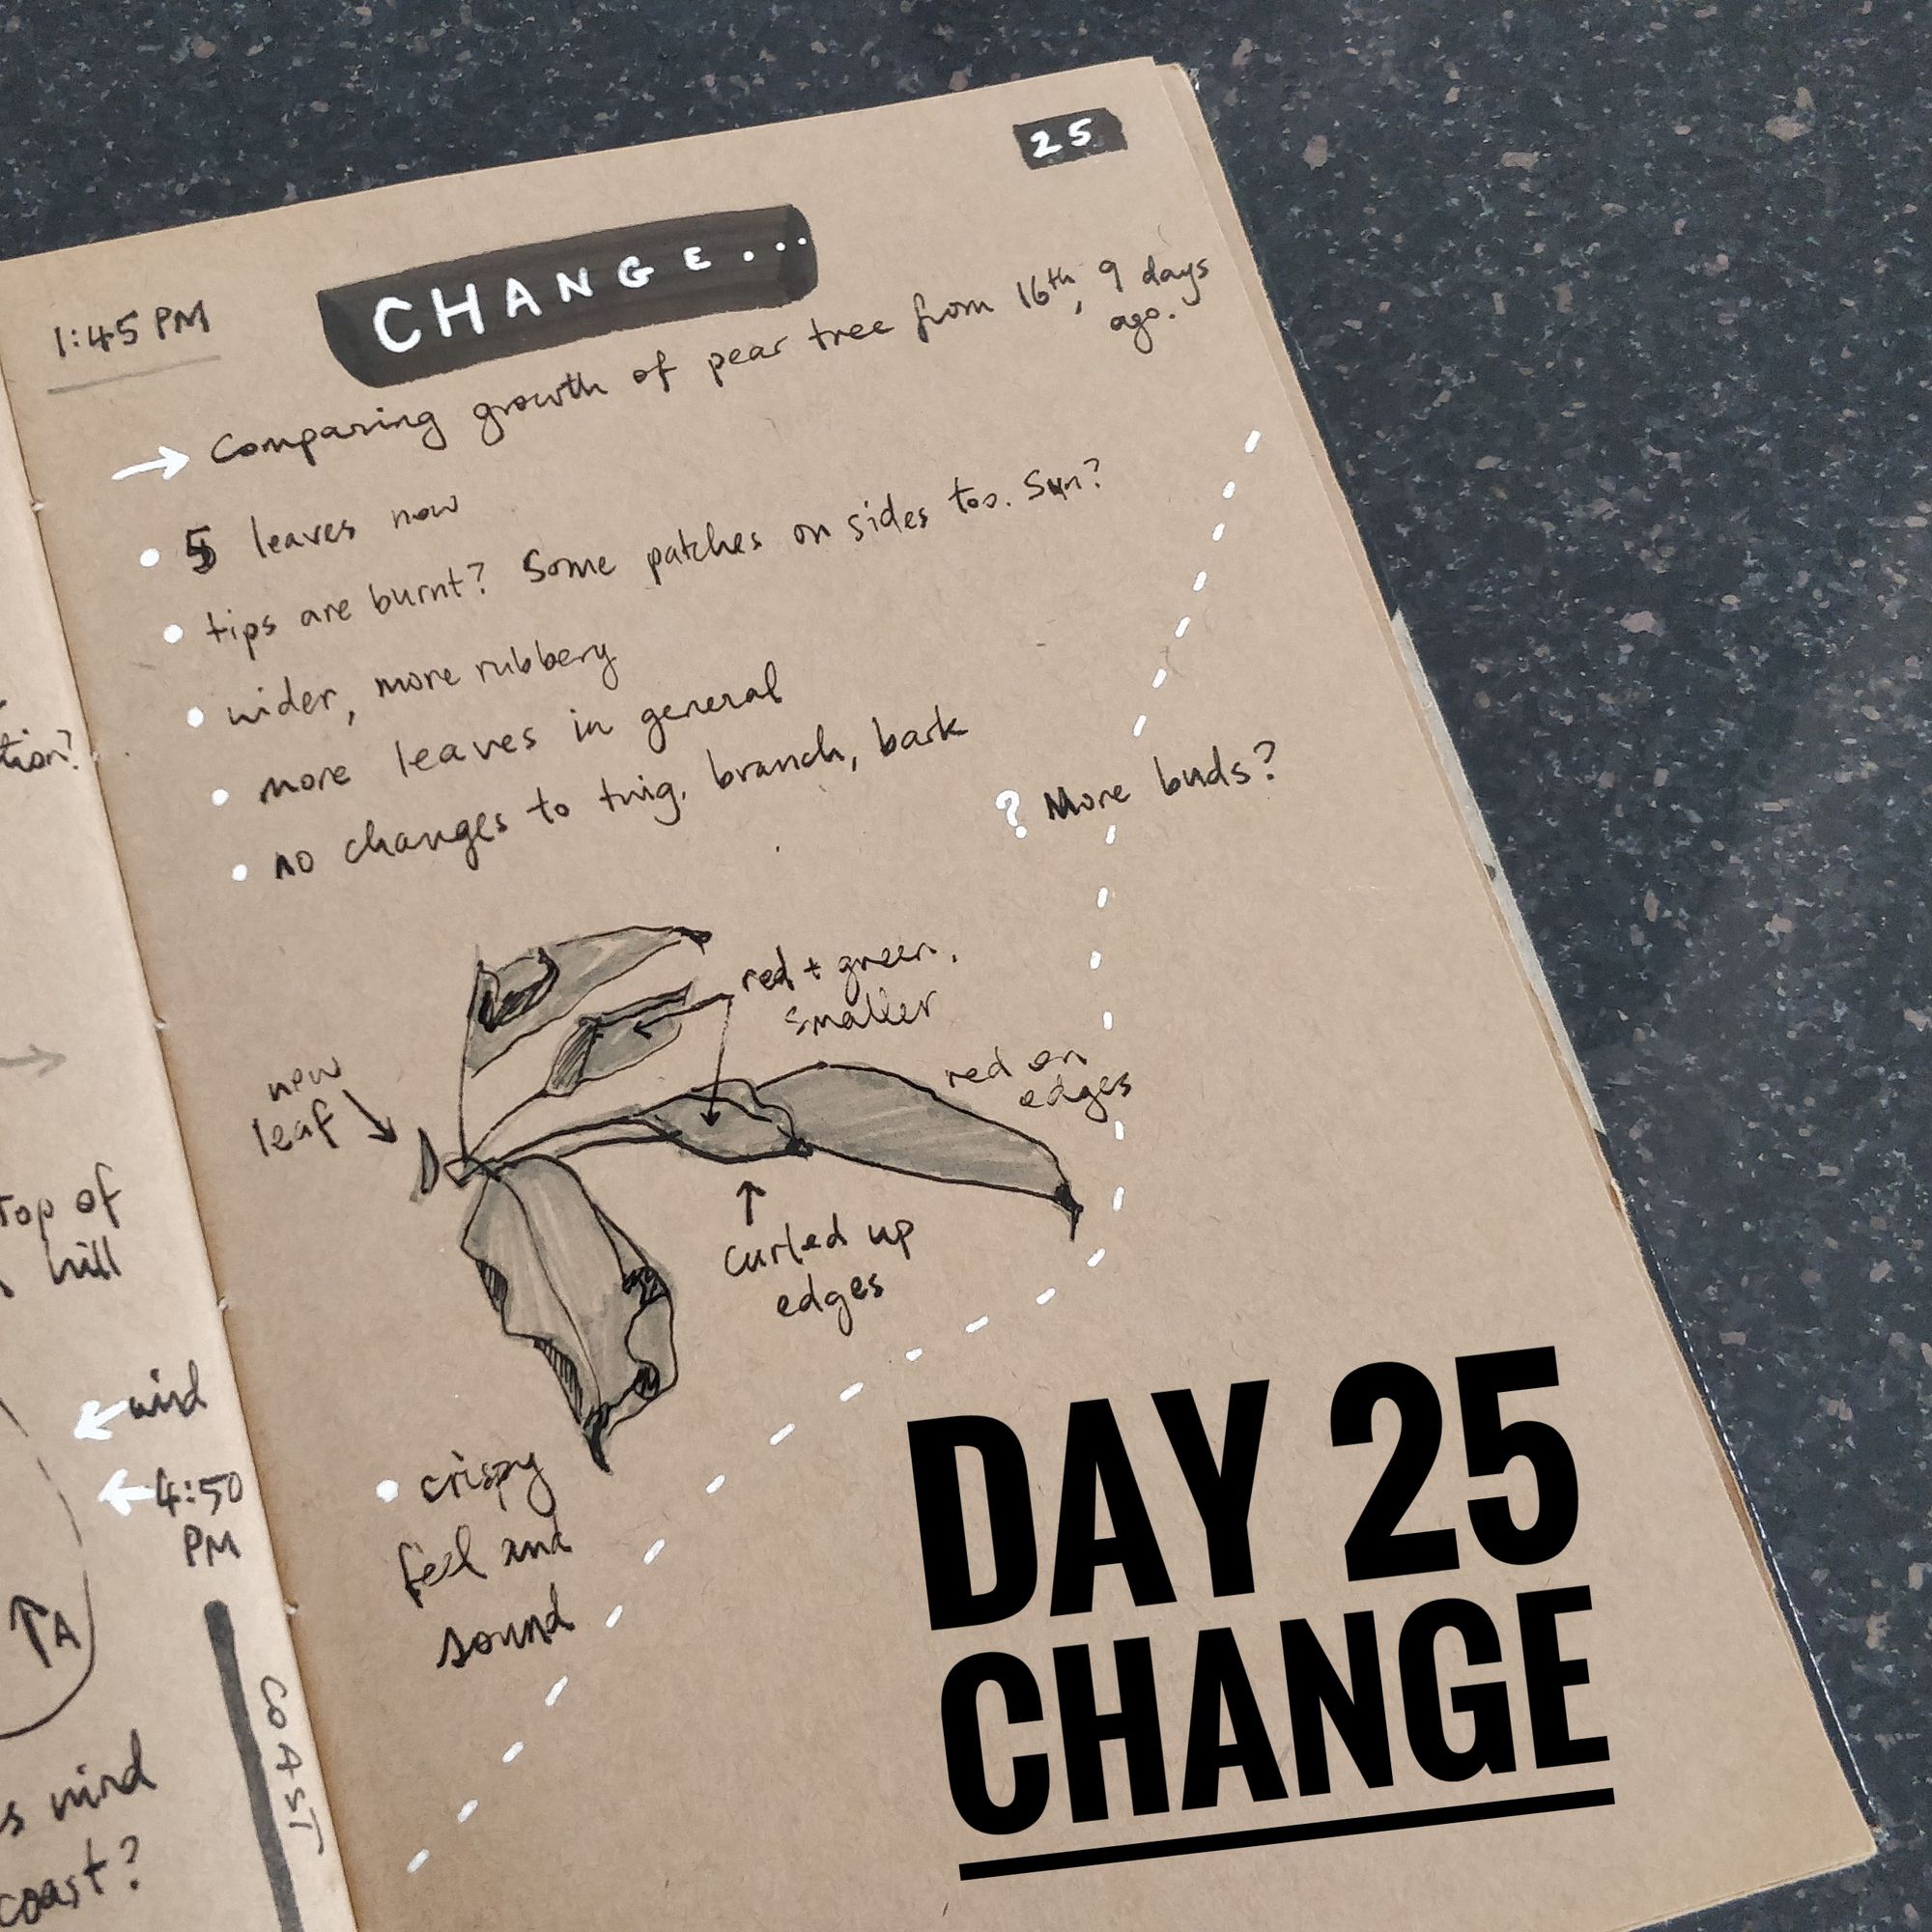 25
CHANGE...
1:45 PM
→ Comparing growth of pear tree from 16th, 9 days
ago.
• 5 leaves now
• tips are burnt? Some patches on sides too. Sun?
• wider, more rubbery
• more leaves in general
• no changes to twig, branch, bark
? More buds?
red + green,
smaller
new
leaf
red on
edges
curled up
edges
• crispy
feel and
sound
tion?
Top of
hill
wind
4:50
PM
A
COAST
s wind
coast?
DAY 25
CHANGE